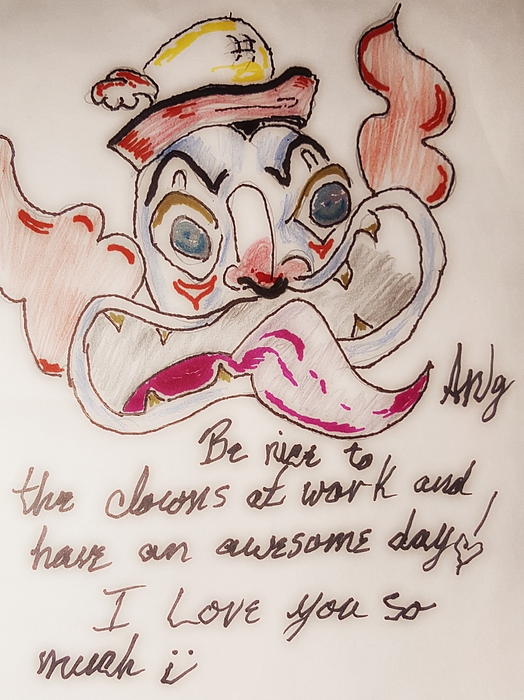 Be nice to
the clowns at work and
have an awesome day!
I Love you so
much ü